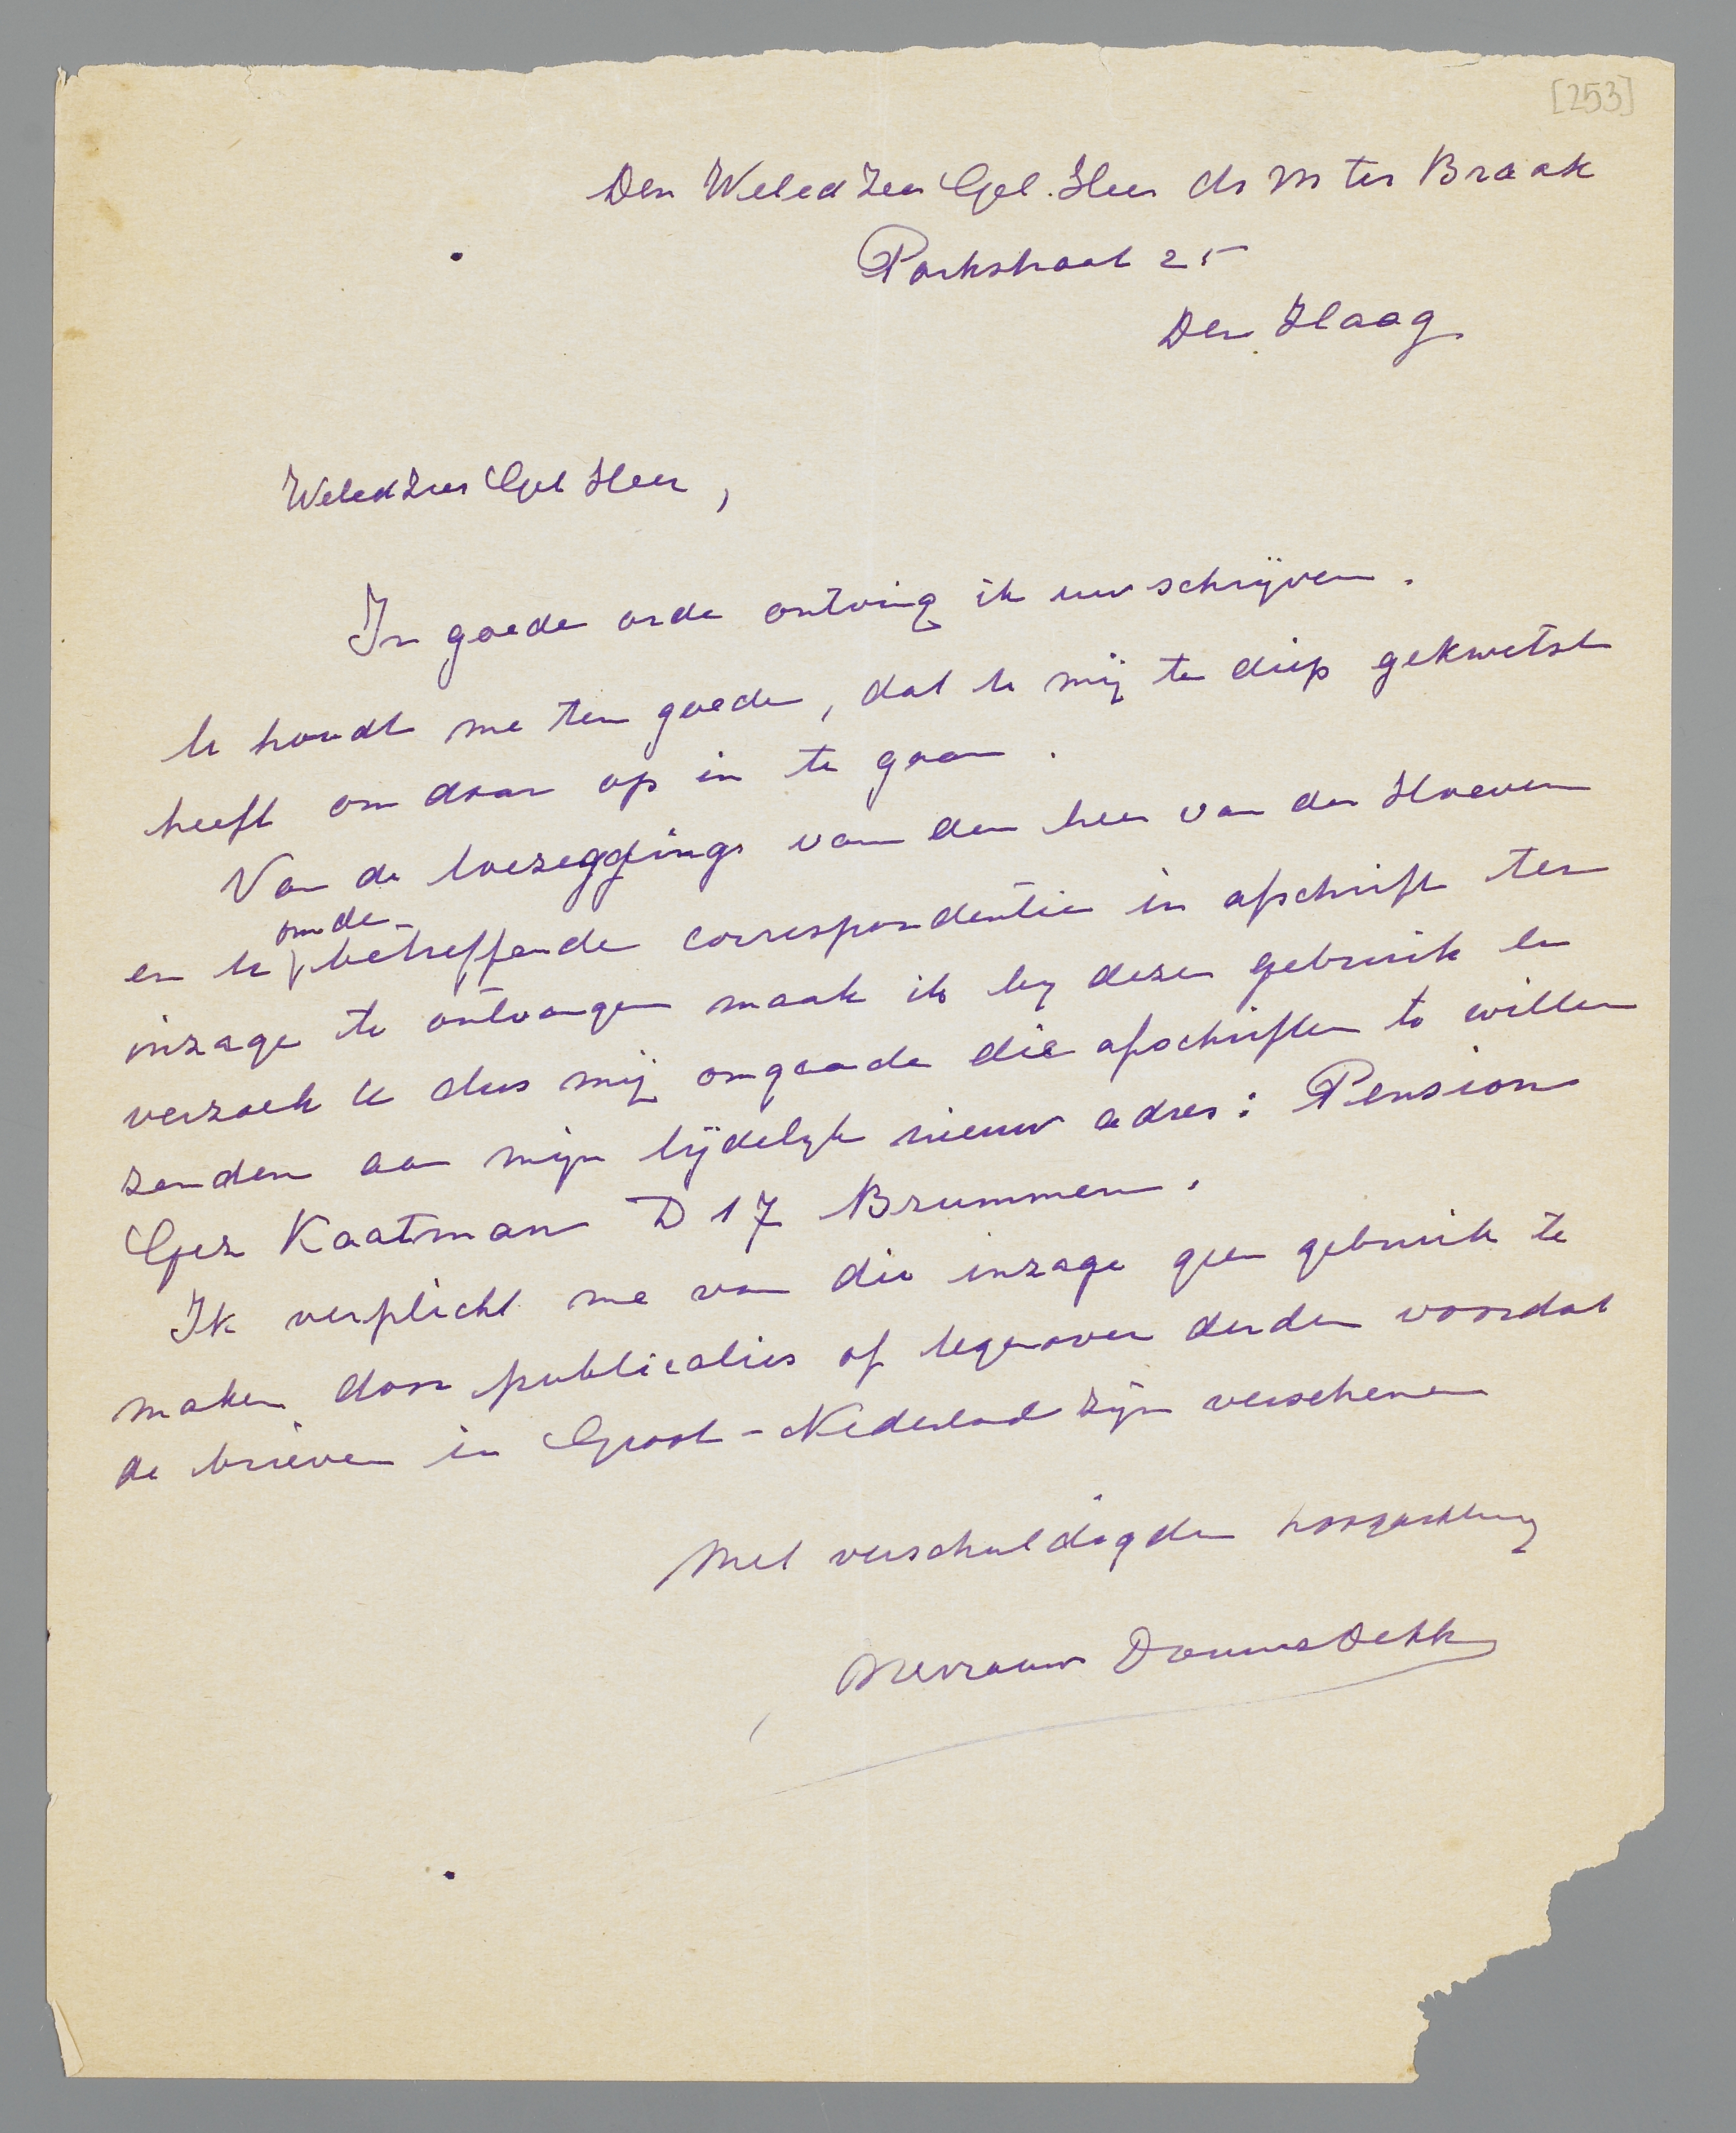 [253]
Den Weled Zeer Gel. Heer dr M ter Braak
Parkstraat 25
Den Haag
Weled Zeer Gel Heer,
In goede orde ontving ik uw schrijven.
U houdt me ten goede, dat U mij te diep gekwetst
heeft om daar op in te gaan.
Van de toezeggings van den heer van der Hoeven
en U om de
betreffende correspondentie in afschrift ter
inzage te ontvangen maak ik by dezen gebruik en
verzoek U dus mij omgaande die afschriften te willen
zenden aan mijn tijdelyk nieuw adres: Pension
Gez Kaatman D 17 Brummen.
Ik verplicht me van die inzage geen gebruik te
maken door publicaties of tegenover derden voordat
de brieven in Groot-Nederland zijn verschenen
Met verschuldigden hoogachting
Mevrouw Douwes Dekker